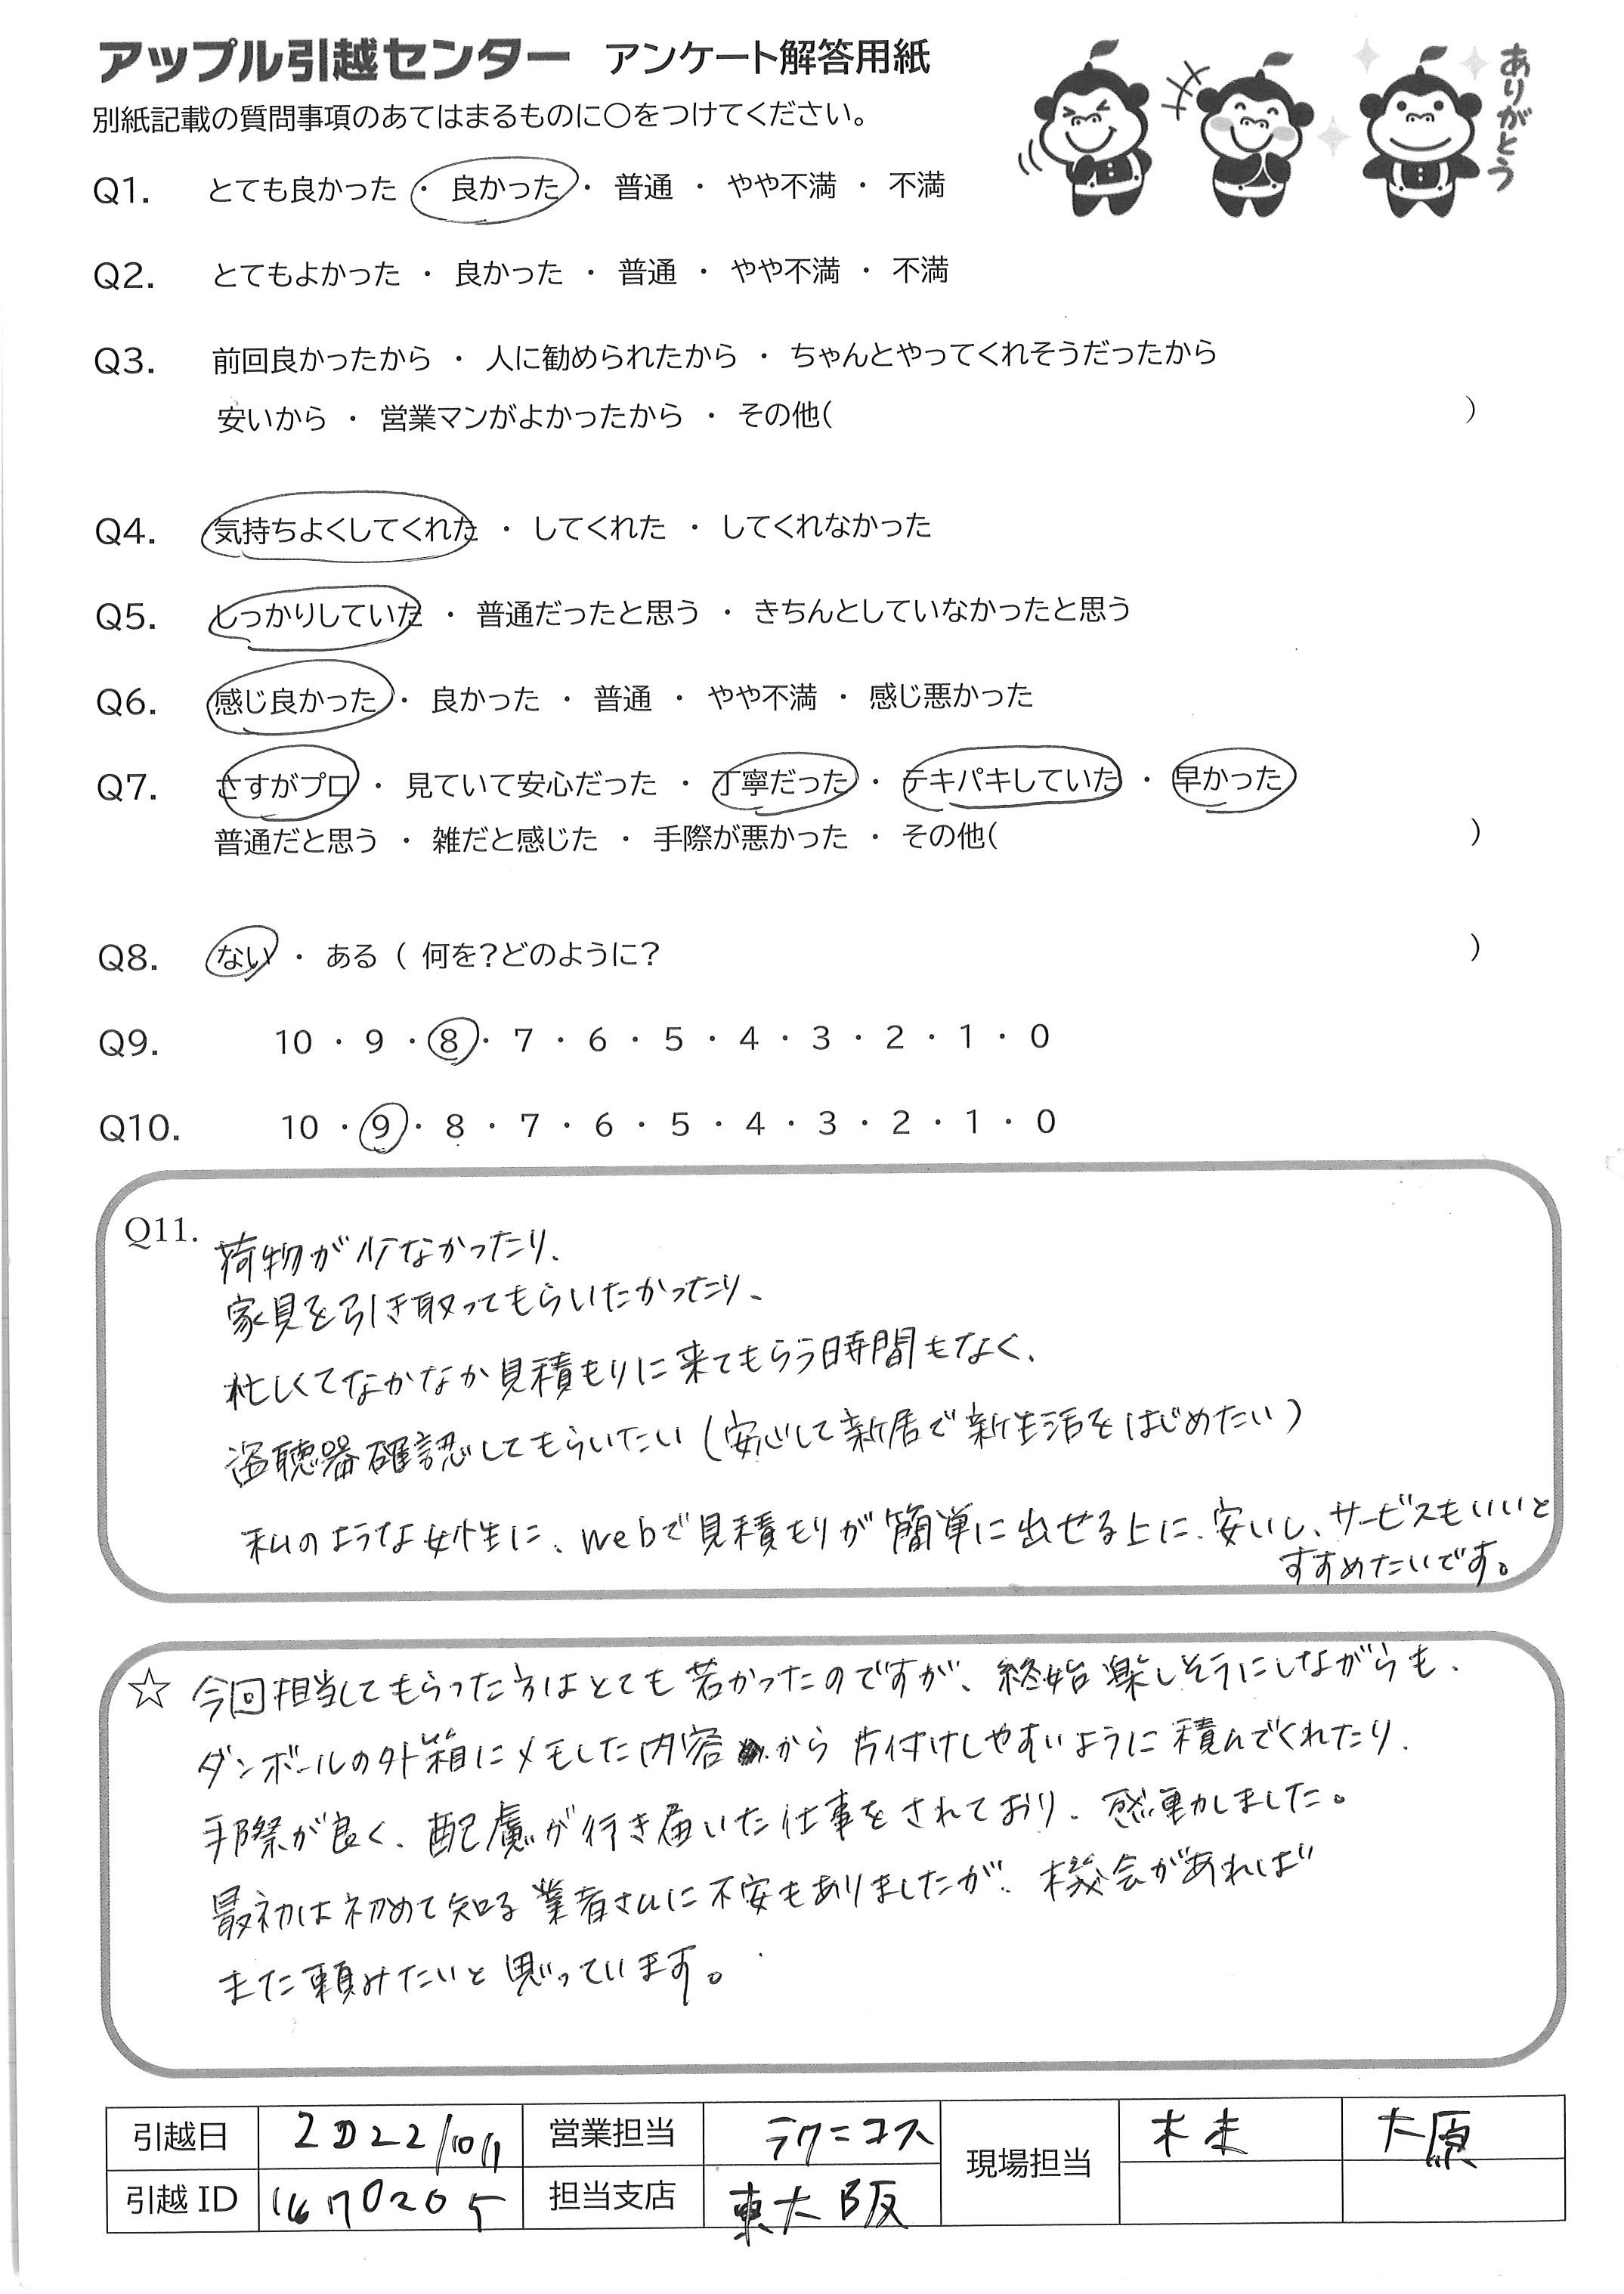 アップル引越センター アンケート解答用紙
別紙記載の質問事項のあてはまるものに○をつけてください。
ありがとう
Q1. とても良かった ・ 良かった ・ 普通 ・ やや不満 ・ 不満
Q2. とてもよかった ・ 良かった ・ 普通 ・ やや不満 ・ 不満
Q3. 前回良かったから ・ 人に勧められたから ・ ちゃんとやってくれそうだったから
安いから ・ 営業マンがよかったから ・ その他( )
Q4. 気持ちよくしてくれた ・ してくれた ・ してくれなかった
Q5. しっかりしていた ・ 普通だったと思う ・ きちんとしていなかったと思う
Q6. 感じ良かった ・ 良かった ・ 普通 ・ やや不満 ・ 感じ悪かった
Q7. さすがプロ ・ 見ていて安心だった ・ 丁寧だった ・ テキパキしていた ・ 早かった
普通だと思う ・ 雑だと感じた ・ 手際が悪かった ・ その他( )
Q8. ない ・ ある ( 何を?どのように? )
Q9. 10 ・ 9 ・ 8 ・ 7 ・ 6 ・ 5 ・ 4 ・ 3 ・ 2 ・ 1 ・ 0
Q10. 10 ・ 9 ・ 8 ・ 7 ・ 6 ・ 5 ・ 4 ・ 3 ・ 2 ・ 1 ・ 0
Q11. 荷物が少なかったり、
家具を引き取ってもらいたかったり、
忙しくてなかなか見積もりに来てもらう時間もなく、
盗聴器確認してもらいたい(安心して新居で新生活をはじめたい)
私のような女性に、webで見積もりが簡単に出せる上に、安いし、サービスもいいと
すすめたいです。
☆ 今回担当してもらった方はとても若かったのですが、終始楽しそうにしながらも、
ダンボールの外箱にメモした内容から片付けしやすいように積んでくれたり、
手際が良く、配慮が行き届いた仕事をされており、感動しました。
最初は初めて知る業者さんに不安もありましたが、機会があれば
また頼みたいと思っています。
引越日 2022/10/1 営業担当 ラクニコス 現場担当 大原
引越ID 担当支店 東大阪